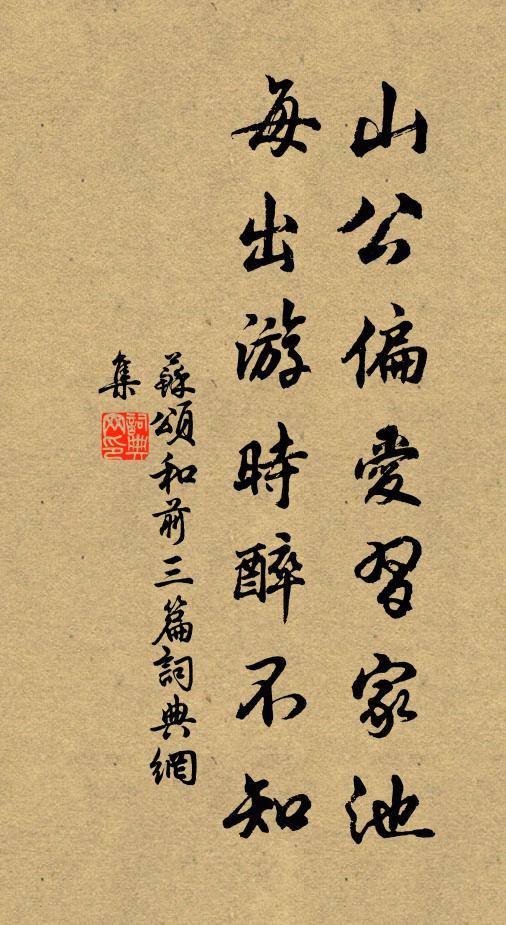 山公偏愛習家池
每出游時醉不知
蘇頌和前三篇詞典網
集
詞典網印